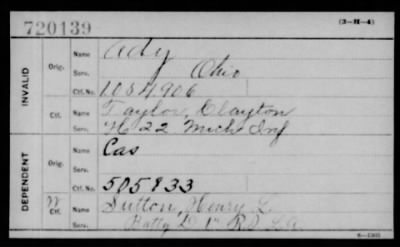 720139
(3-H-4)
INVALID
Orig.
Name Ady
Serv. Ohio
Ctf. No. 1054906
Ctf.
Name Taylor, Clayton
Serv. H 22 Mich Inf
DEPENDENT
Orig.
Name Cas
Serv.
Ctf. No. 505933
W Ctf.
Name Sutton, Henry L.
Serv. Batty D 1st R.I. L.A.